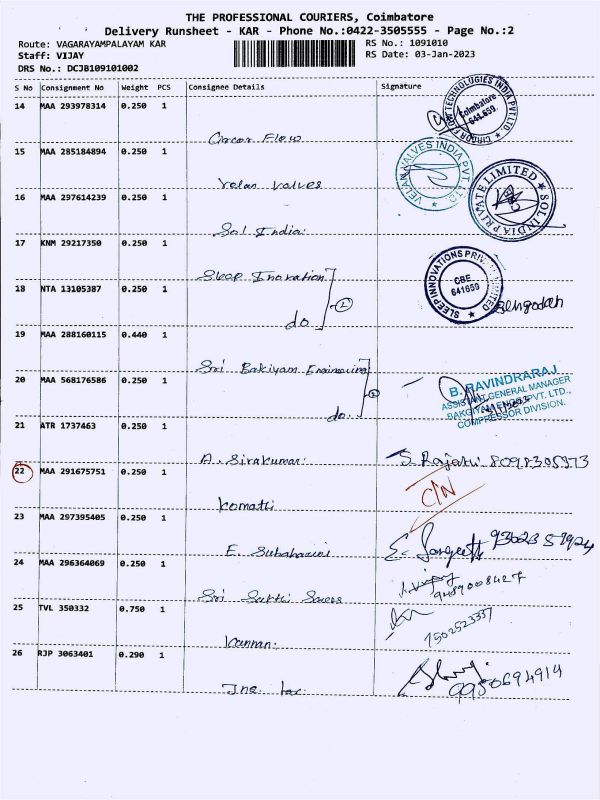 THE PROFESSIONAL COURIERS, Coimbatore
Delivery Runsheet - KAR - Phone No.:0422-3505555 - Page No.:2
Route: VAGARAYAMPALAYAM KAR
RS No.: 1091010
Staff: VIJAY
RS Date: 03-Jan-2023
DRS No.: DCJB109101002
S No Consignment No Weight PCS Consignee Details Signature
14 MAA 293978314 0.250 1
Circor Flow
CIRCOR FLOW TECHNOLOGIES INDIA PVT LTD.
Coimbatore
641 659.
15 MAA 285184894 0.250 1
Velan Valves
VELAN VALVES INDIA PVT. LTD
16 MAA 297614239 0.250 1
Sol India
SOL INDIA PRIVATE LIMITED
17 KNM 29217350 0.250 1
Sleep Inovation
SLEEP INNOVATIONS PRIVATE LIMITED
CBE
641659
18 NTA 13105387 0.250 1
do. 2
19 MAA 288160115 0.440 1
Sri Bakiyam Engineering
20 MAA 568176586 0.250 1
do. 2
B. RAVINDRARAJ
ASSISTANT GENERAL MANAGER
BAKGIYAM ENGG PVT. LTD.,
COMPRESSOR DIVISION.
21 ATR 1737463 0.250 1
A. Sivakumar
S. Rajani 8098305973
22 MAA 291675751 0.250 1
Komathi
C/N
23 MAA 297395405 0.250 1
E. Subahasini
E. Sangeeth 9302357924
24 MAA 296364069 0.250 1
Sri Sakthi
9489008427
25 TVL 350332 0.750 1
Kannan
7502523337
26 RJP 3063401 0.290 1
Ine. tax
9950694914